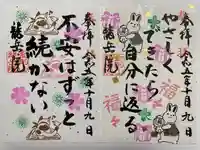 奉拝 令和五年十月九日
やさしく
できたら
自分に返る
福々
奉拝 令和五年十月九日
不安はずっと
続かない
龍安院